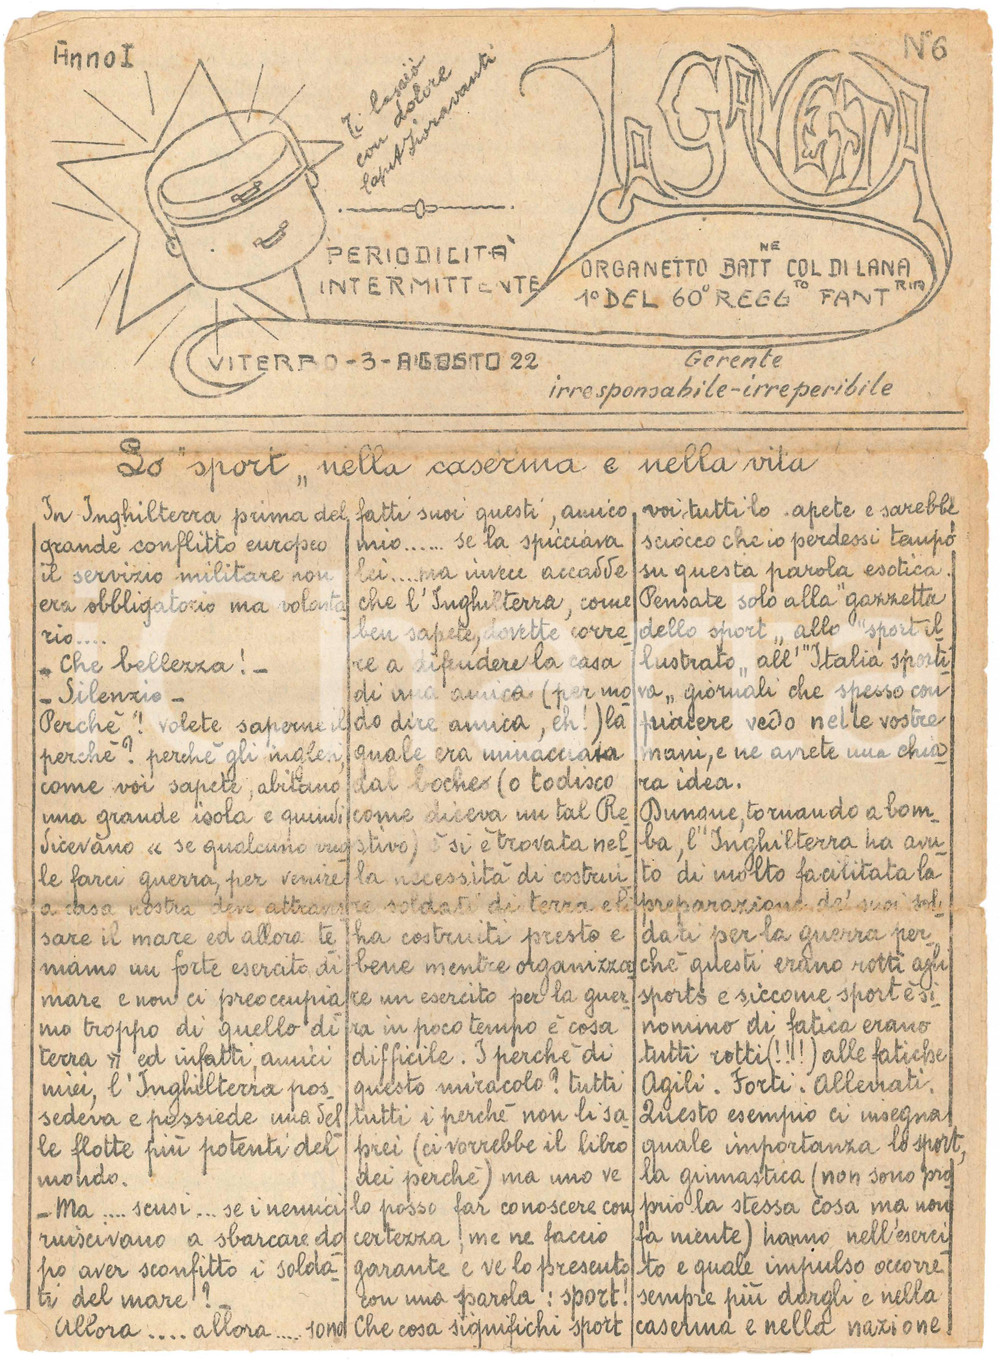 Anno I
N° 6
Ti lascio
con dolore
Capit Fioravanti
LA GAVETTA
PERIODICITÀ
INTERMITTENTE
ORGANETTO BATT NE COL DI LANA
1° DEL 60° REGG TO FANT RIA
VITERBO - 3 - AGOSTO 22
Gerente
irresponsabile - irreperibile
Lo "sport„ nella caserma e nella vita
In Inghilterra prima del
grande conflitto europeo
il servizio militare non
era obbligatorio ma volonta
rio....
- Che bellezza! -
- Silenzio -
Perchè! volete saperne il
perchè? perchè gli inglesi,
come voi sapete, abitano
una grande isola e quindi
dicevano « se qualcuno vuo
le farci guerra, per venire
a casa nostra deve attraver
sare il mare ed allora te
niamo un forte esercito di
mare e non ci preoccupia
mo troppo di quello di
terra » ed infatti, amici
miei, l'Inghilterra pos-
sedeva e possiede una del
le flotte più potenti del
mondo.
- Ma .... scusi ... se i nemici
riuscivano a sbarcare do
po aver sconfitto i solda-
ti del mare? -
Allora .... allora .... sono
fatti suoi questi, amico
mio...... se la spicciava
lei.... ma invece accadde
che l'Inghilterra, come
ben sapete, dovette corre-
re a difendere la casa
di una amica (per mo
do dire amica, eh!) la
quale era minacciata
dal boche (o todisco
come diceva un tal Re-
stivo) e si è trovata nel-
la necessità di costrui-
re soldati di terra e li
ha costruiti presto e
bene mentre organizza
re un esercito per la guer-
ra in poco tempo è cosa
difficile. I perchè di
questo miracolo? tutti
tutti i perchè non li sa
prei (ci vorrebbe il libro
dei perchè) ma uno ve
lo posso far conoscere con
certezza, me ne faccio
garante e ve lo presento
con una parola: sport!
Che cosa significhi sport
voi tutti lo sapete e sarebbe
sciocco che io perdessi tempo
su questa parola esotica.
Pensate solo alla "gazzetta
dello sport„ allo "sport il
lustrato„ all'"Italia sporti
va„ giornali che spesso con
piacere vedo nelle vostre
mani, e ne avrete una chia
ra idea.
Dunque, tornando a bom-
ba, l'Inghilterra ha avu-
to di molto facilitata la
preparazione de' suoi sol-
dati per la guerra per-
chè questi erano rotti agli
sports e siccome sport è si-
nonimo di fatica erano
tutti rotti (!!!) alle fatiche
Agili. Forti. Allenati.
Questo esempio ci insegna
quale importanza lo sport,
la ginnastica (non sono pro
prio la stessa cosa ma non
fa niente) hanno nell'eserci
to e quale impulso occorre
sempre più dargli e nella
caserma e nella nazione.